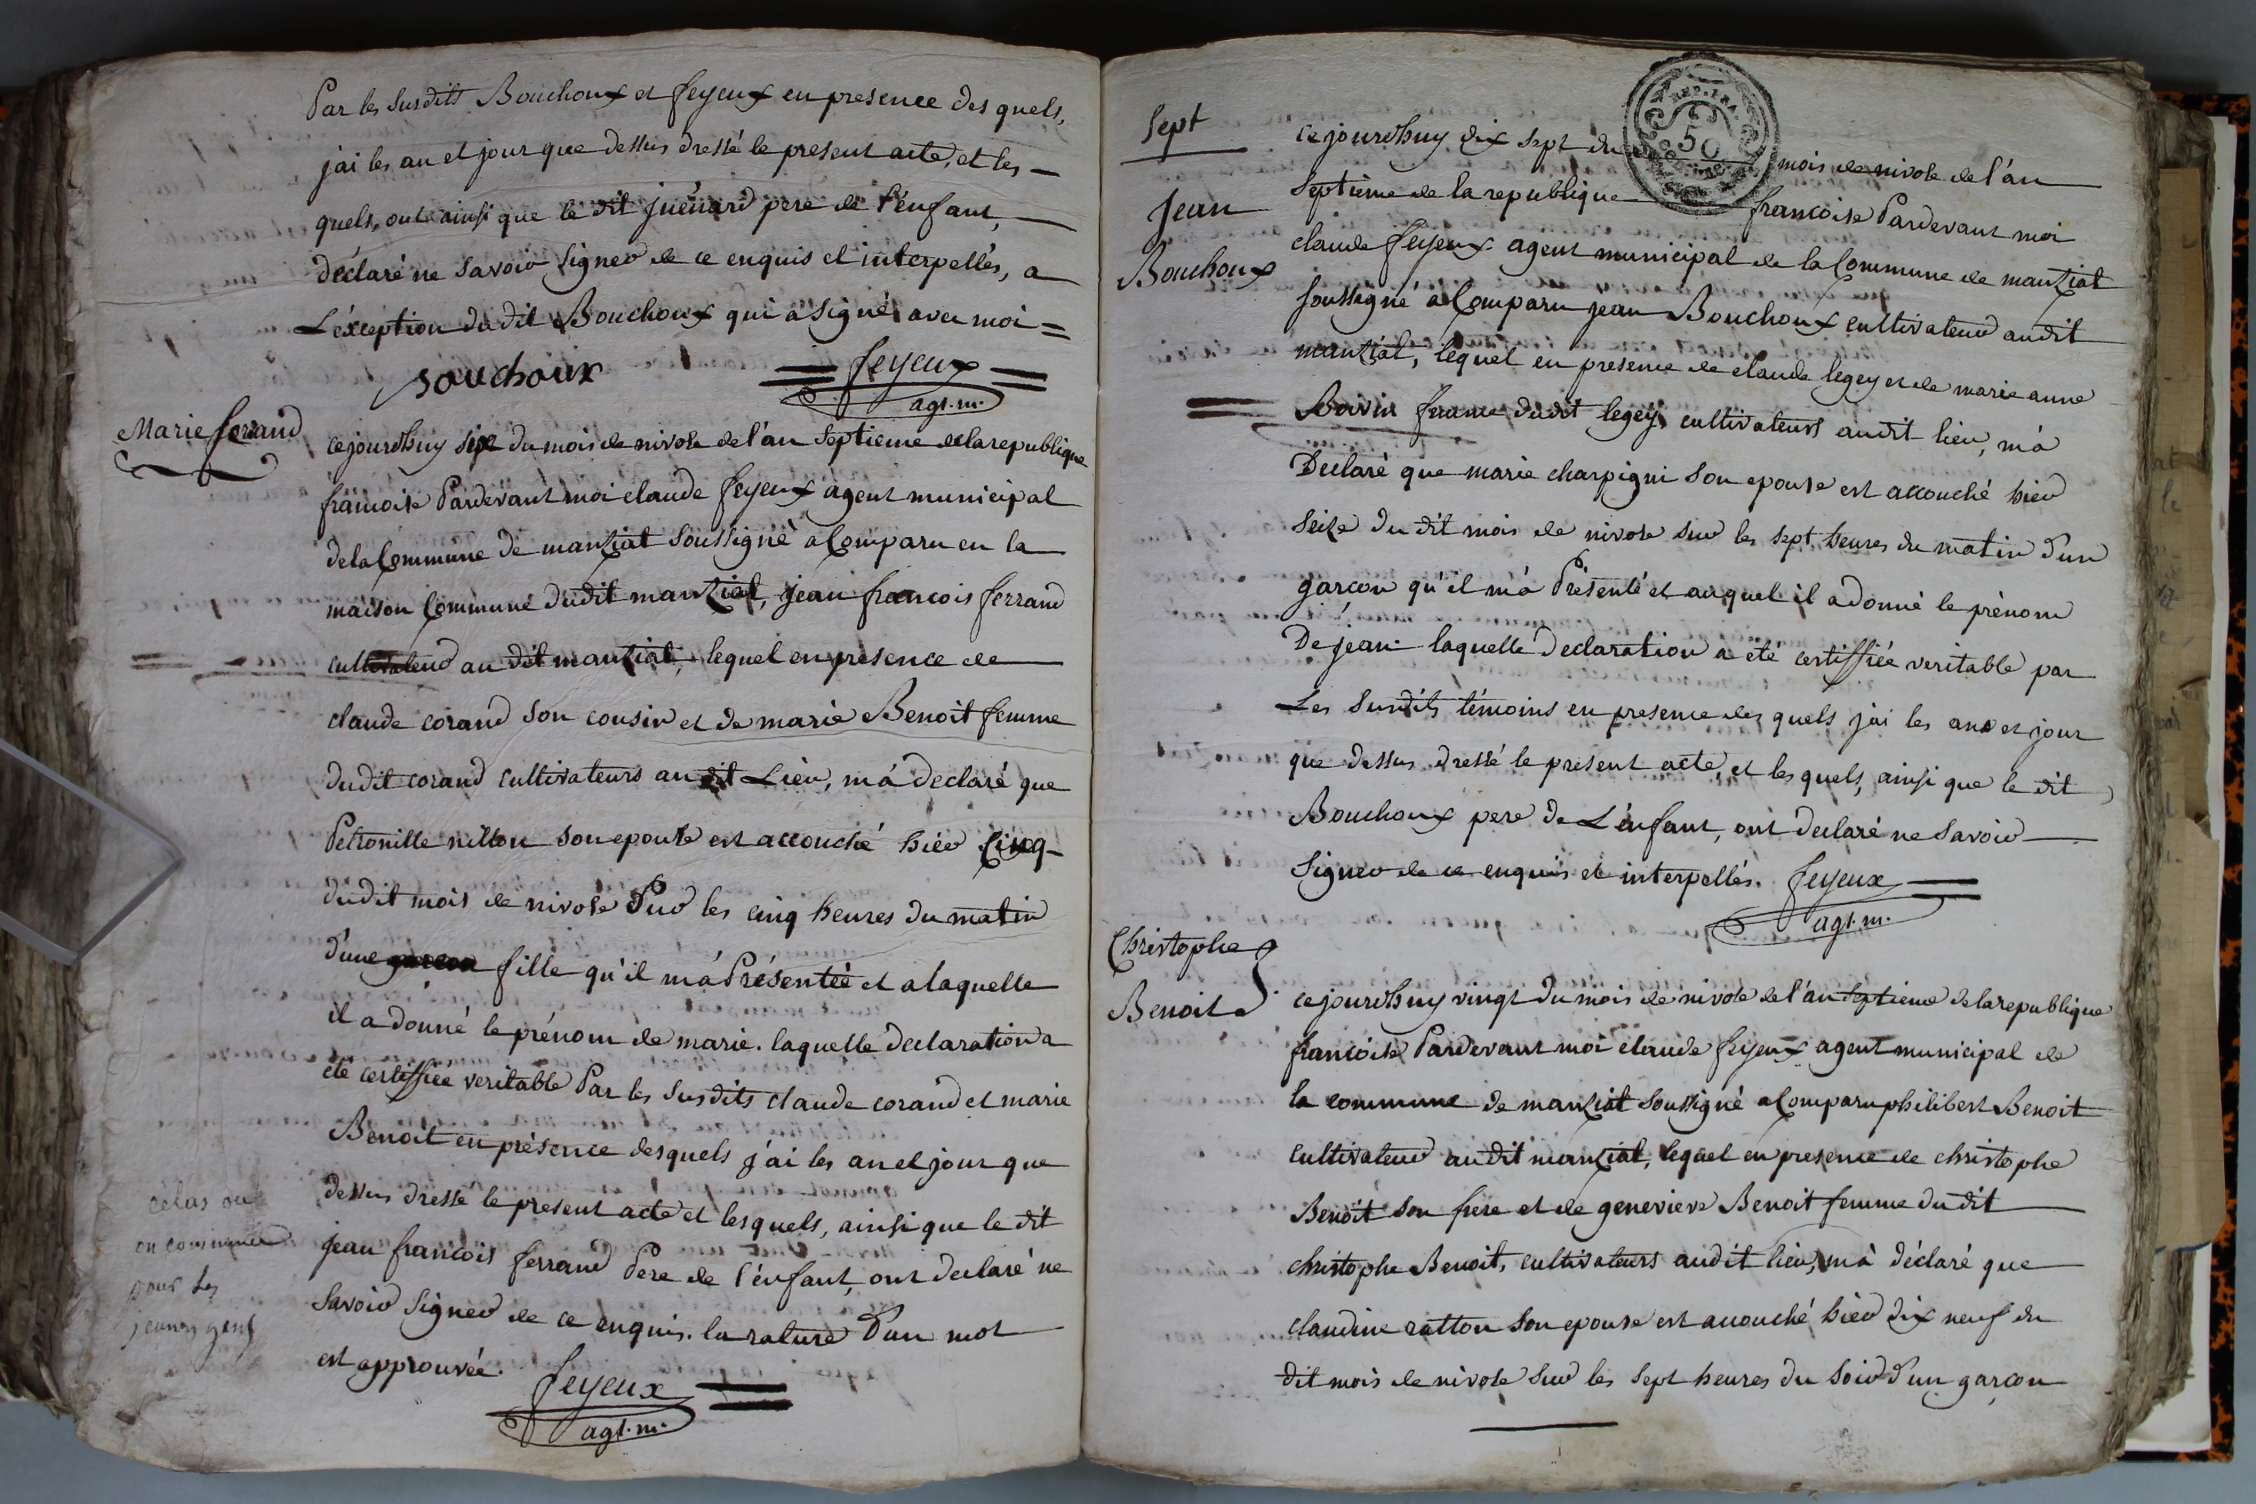 Par les susdits Bouchoux et feyeux en presence des quels,
j'ai les an et jour que dessus dressé le present acte, et les
quels, ont ainsi que le dit juénard pere de l'énfant,
déclaré ne savoir signer de ce enquis et interpellés, a
L'éxception dudit Bouchoux qui a signé avec moi
Bouchoux feyeux
agt. m.
Marie ferand
cejourdhuy six du mois de nivose de l'an septieme de la republique
francoise Pardevant moi claude feyeux agent municipal
de la Commune de manziat soussigné a Comparu en la
maison Commune dudit manziat, jean francois ferrand
cultivateur au dit manziat, lequel en présence de
claude corand son cousin et de marie Benoit femme
dudit corand cultivateurs au dit Lieu, m'a declaré que
Petronille nitton son epouse est accouché hier Cinq
dudit mois de nivose sur les cinq heures du matin
d'une garcon fille qu'il m'a Présentée et a laquelle
il a donné le prénom de marie. laquelle declaration a
été certiffiée veritable Par les susdits claude corand et marie
Benoit en présence desquels j'ai les an et jour que
dessus dressé le present acte et lesquels, ainsi que le dit
jean francois ferrand Pere de l'énfant, ont declaré ne
savoir signer de ce enquis. la rature d'un mot
est approuvée.
feyeux
agt. m.
on commence
pour les
jeunes gens
Sept
Jean
Bouchoux
REP. FRA.
50
cejourdhuy dix sept du mois de nivose de l'an
septieme de la republique francoise Pardevant moi
claude feyeux agent municipal de la Commune de manziat
soussigné a Comparu jean Bouchoux cultivateur audit
manziat, lequel en presence de claude legey et de marie anne
Boivin femme dudit legey cultivateurs audit lieu, m'a
Declaré que marie charpigni son epouse est accouché hier
seize du dit mois de nivose sur les sept heures du matin d'un
garcon qu'il m'a Présenté et auquel il a donné le prénom
De jean. laquelle declaration a été certiffiée veritable par
Les susdits témoins en presence des quels j'ai les an et jour
que dessus dressé le present acte, et les quels, ainsi que le dit
Bouchoux pere de L'énfant, ont declaré ne savoir
signer de ce enquis et interpellés. feyeux
agt. m.
Christophe
Benoit
cejourdhuy vingt du mois de nivose de l'an septieme de la republique
francoise Pardevant moi claude feyeux agent municipal de
la commune de manziat soussigné a Comparu philibert Benoit
cultivateur au dit manziat, lequel en presence de christophe
Benoit son frere et de genevieve Benoit femme du dit
christophe Benoit, cultivateurs audit lieu, m'a déclaré que
claudine ratton son epouse est accouché hier dix neuf du
dit mois de nivose sur les sept heures du soir d'un garcon